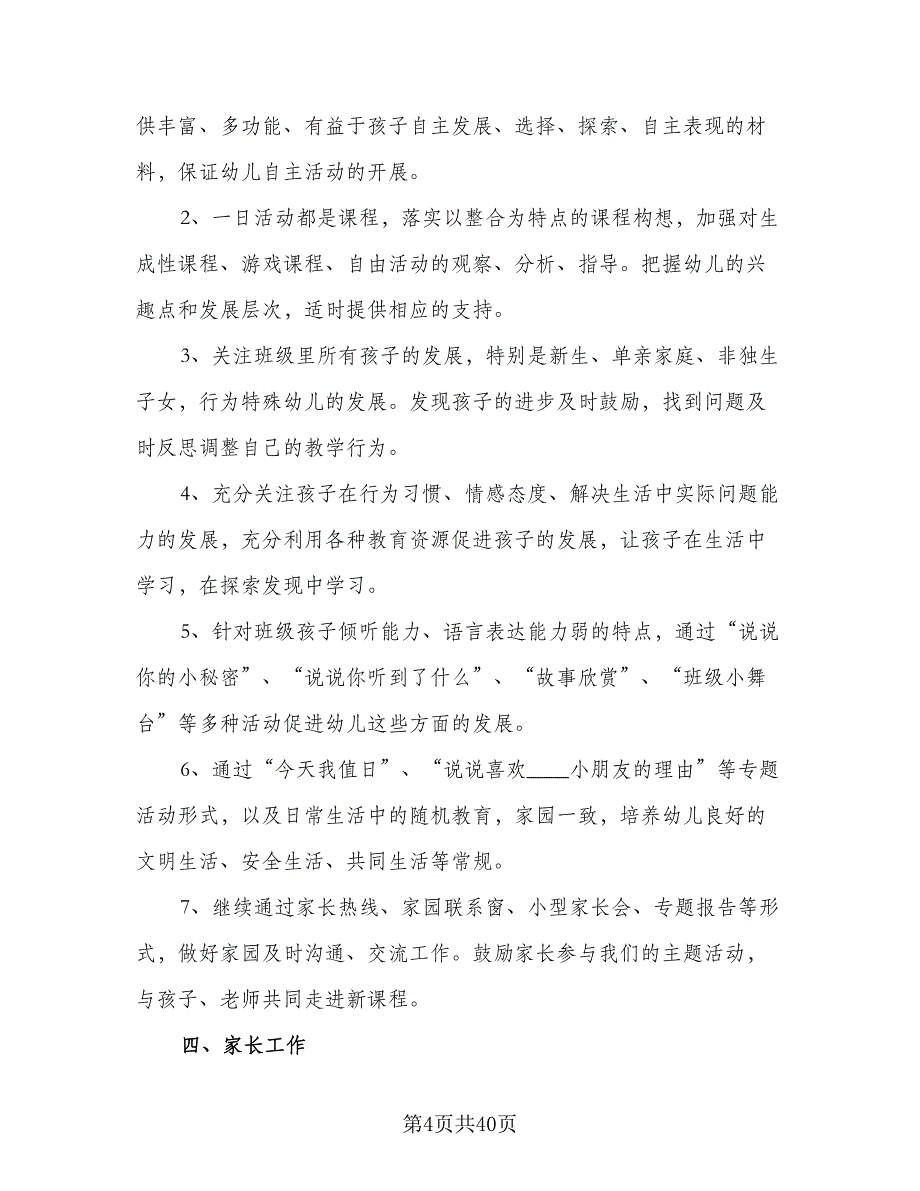 供丰富、多功能、有益于孩子自主发展、选择、探索、自主表现的材
料，保证幼儿自主活动的开展。
2、一日活动都是课程，落实以整合为特点的课程构想，加强对生
成性课程、游戏课程、自由活动的观察、分析、指导。把握幼儿的兴
趣点和发展层次，适时提供相应的支持。
3、关注班级里所有孩子的发展，特别是新生、单亲家庭、非独生
子女，行为特殊幼儿的发展。发现孩子的进步及时鼓励，找到问题及
时反思调整自己的教学行为。
4、充分关注孩子在行为习惯、情感态度、解决生活中实际问题能
力的发展，充分利用各种教育资源促进孩子的发展，让孩子在生活中
学习，在探索发现中学习。
5、针对班级孩子倾听能力、语言表达能力弱的特点，通过“说说
你的小秘密”、“说说你听到了什么”、“故事欣赏”、“班级小舞
台”等多种活动促进幼儿这些方面的发展。
6、通过“今天我值日”、“说说喜欢____小朋友的理由”等专题
活动形式，以及日常生活中的随机教育，家园一致，培养幼儿良好的
文明生活、安全生活、共同生活等常规。
7、继续通过家长热线、家园联系窗、小型家长会、专题报告等形
式，做好家园及时沟通、交流工作。鼓励家长参与我们的主题活动，
与孩子、老师共同走进新课程。
四、家长工作
第4页共40页